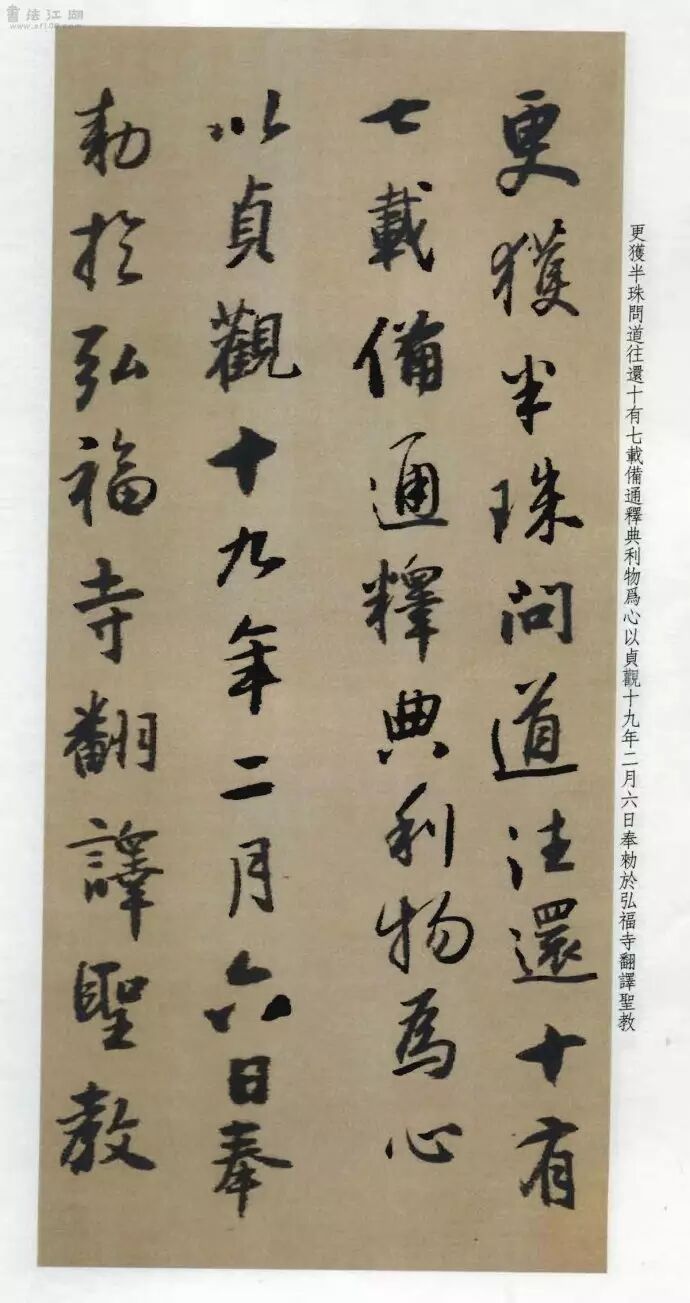 書法江湖
www.sf108.com
更獲半珠問道往還十有
七載備通釋典利物為心
以貞觀十九年二月六日奉
勑於弘福寺翻譯聖教
更獲半珠問道往還十有七載備通釋典利物爲心以貞觀十九年二月六日奉勑於弘福寺翻譯聖教